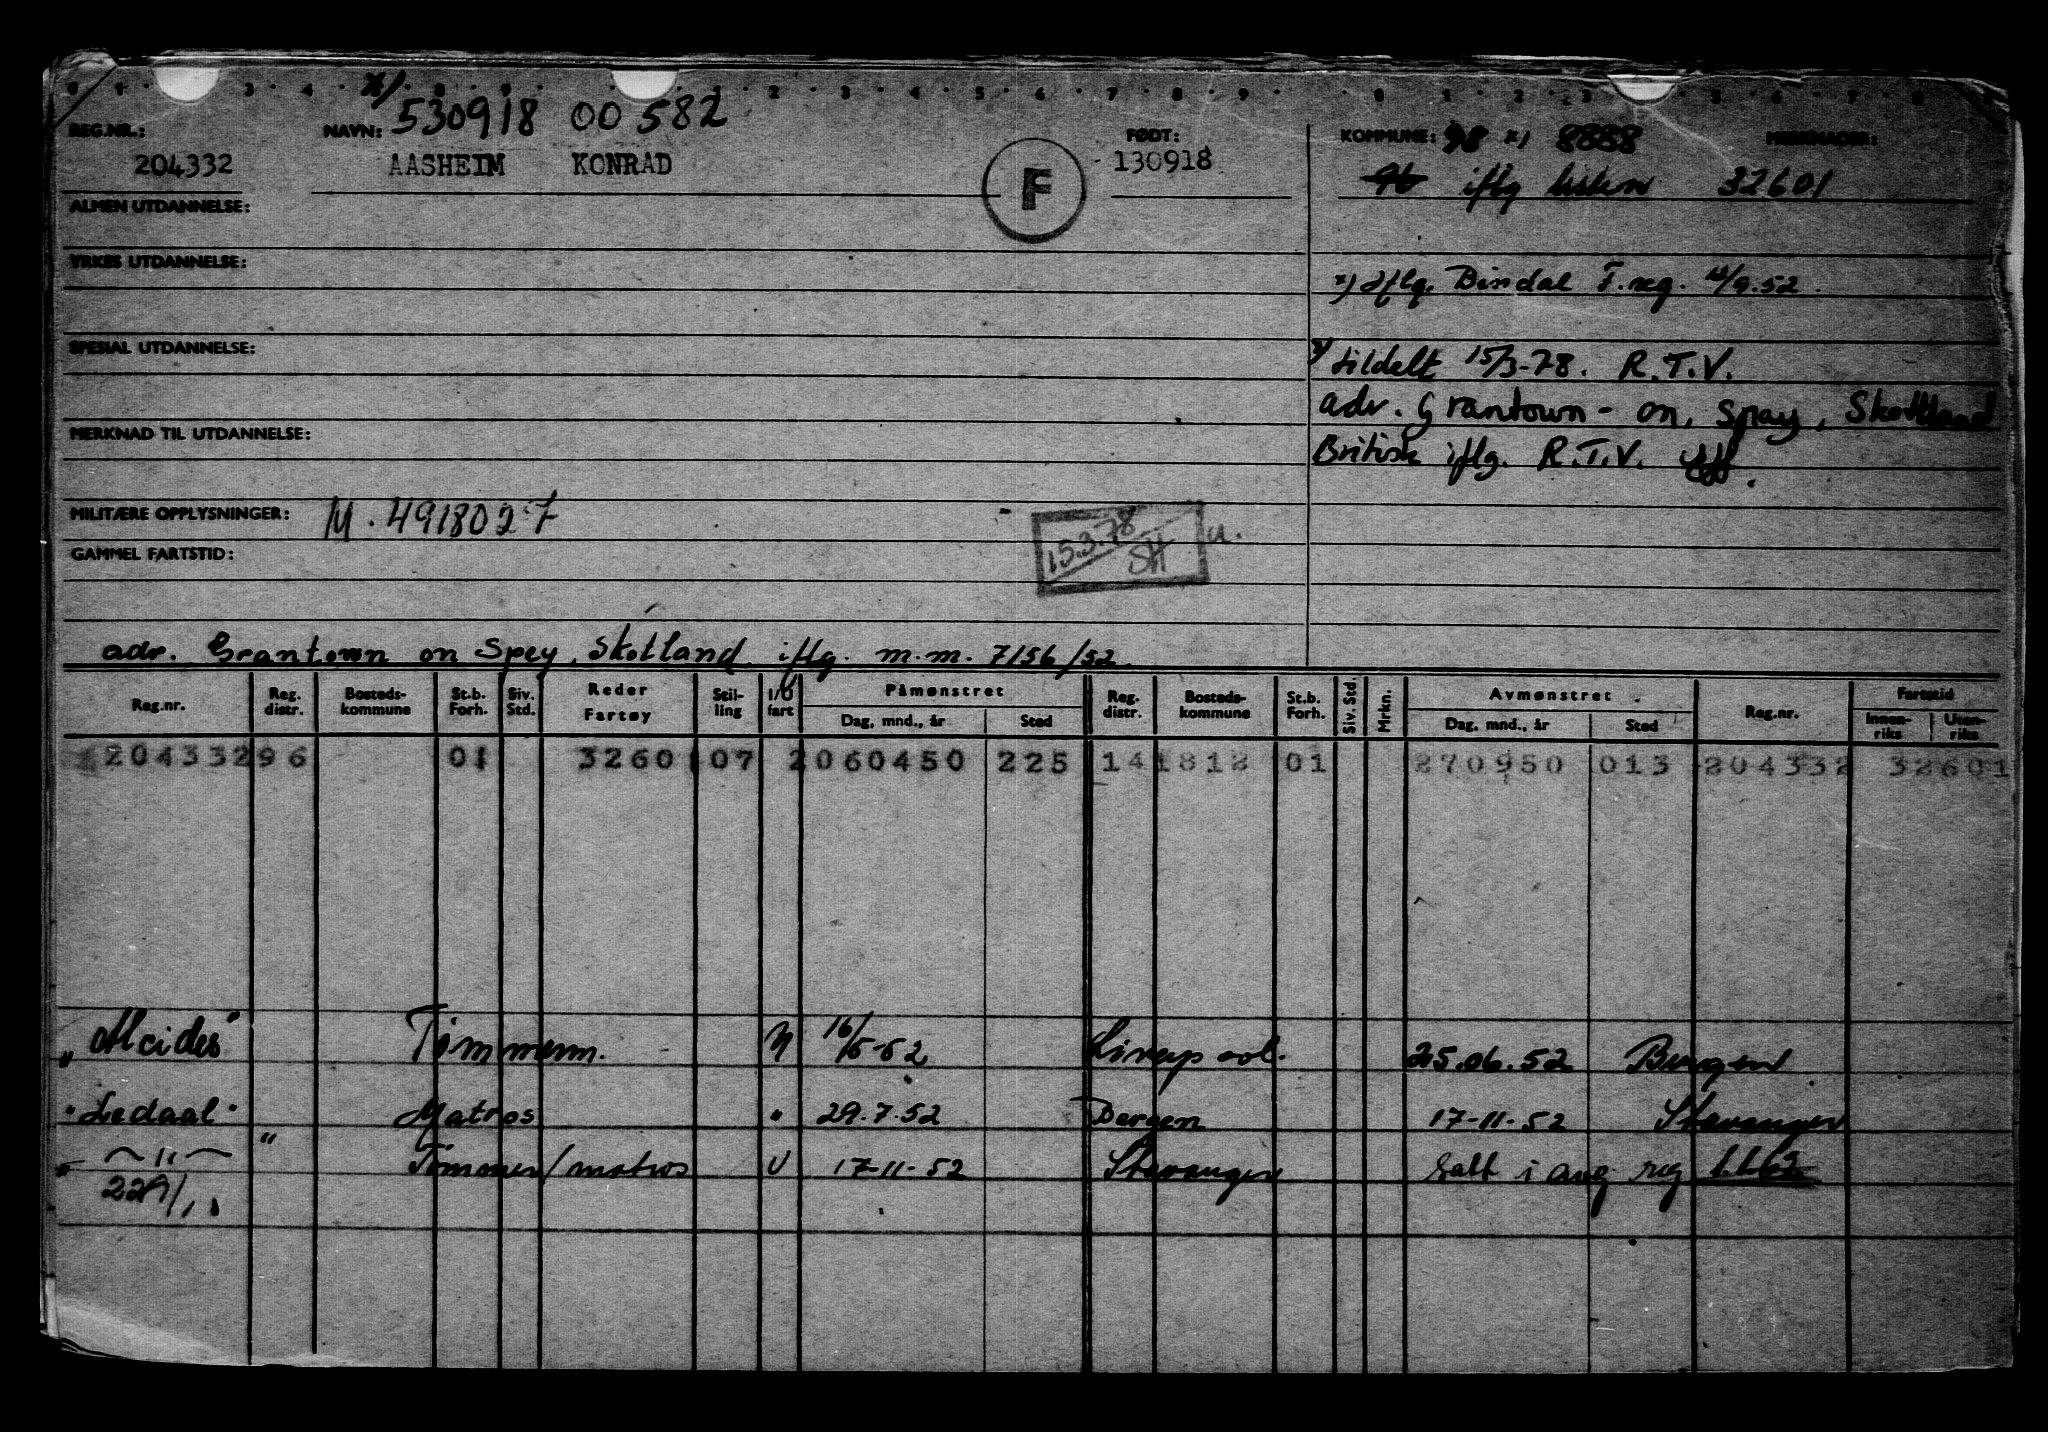 x) 530918 00 582
REG.NR.: NAVN: FØDT: KOMMUNE: 98 x) 8888 MERKNADER:
204332 AASHEIM KONRAD F 130918
iflg listen 32601
ALMEN UTDANNELSE:
YRKES UTDANNELSE:
x) iflg. Bindal F.reg. /9.52
SPESIAL UTDANNELSE:
tildelt 15/3-78. R.T.V.
adr. Grantown - on, Spay, Skottland
MERKNAD TIL UTDANNELSE:
British iflg. R.T.V.
MILITÆRE OPPLYSNINGER: M. 4918027
15.3.78 SH u.
GAMMEL FARTSTID:
adr. Grantown on Spey, Skotland iflg. m.m. 7156/52
Reg.nr. Reg. distr. Bosteds-kommune St.b. Forh. Siv. Std. Reder Fartøy Stil-ling I/U fart Påmønstret Dag, mnd., år Sted Reg. distr. Bosteds-kommune St.b. Forh. Siv. Std. Mrkn. Avmønstret Dag, mnd., år Sted Reg.nr. Fartstid Innen-riks Uten-riks
204332 96 01 3260 107 2 060450 225 14 1812 01 270950 013 204332 32601
"Alcides" Tømmerm. 16/5-52 Liverpool. 25.06.52 Bergen
"Ledaal" Matros " 29.7.52 Bergen 17-11-52 Stavanger
" — " — Tømmer/matros U 17-11-52 Stavanger Satt i avg reg
229/